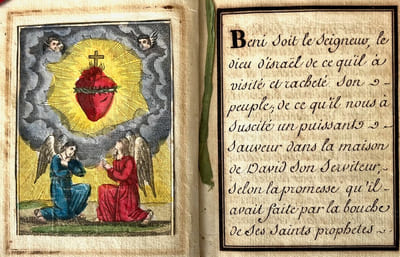 Beni soit le Seigneur, le
dieu d'israël de ce qu'il à
visité et racheté Son
peuple; de ce qu'il nous à
Suscité un puissant
Sauveur dans la maison
de David Son Serviteur,
Selon la promesse qu'il
avait faite par la bouche
de Ses Saints prophetes